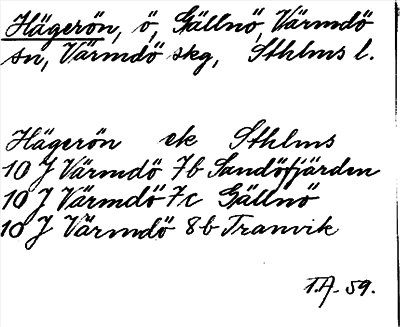 Hägerön, ö, Gällnö, Värmdö
sn, Värmdö skg, Sthlms l.
Hägerön ek Sthlms
10 J Värmdö 7b Sandöfjärden
10 J Värmdö 7c Gällnö
10 J Värmdö 8b Tranvik
T.A. 59.